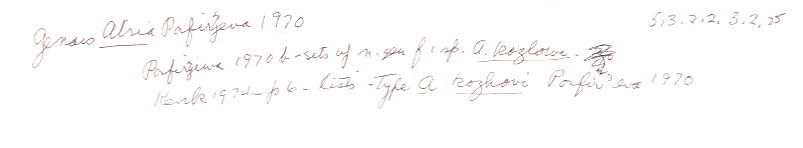 Genus Atria Porfirjeva 1970 5,3.2,2.3.2,25
Porfirjeva 1970 b-sets up n. gen f 1 sp. A. kozlowi.
Kenk 1974-p 6- lists -type A kozhovi Porfir'eva 1970